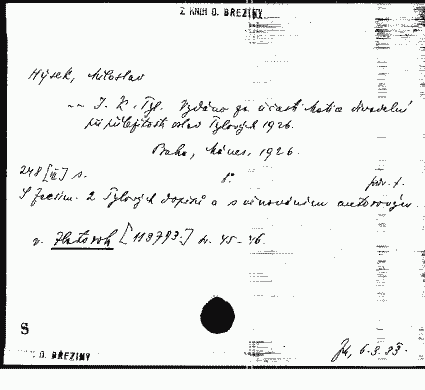 Z KNIH O. BŘEZINY
Hýsek, Miloslav
~ J. K. Tyl. Vydáno za účasti Matice divadelní
při příležitosti oslav Tylových 1926.
Praha, Mánes, 1926.
248 [III] s. 8° pův. f.
S facsim. 2 Tylových dopisů a s věnováním autorovým.
v. Zlatoroh [118793.] sv. 45-46.
S
O. BŘEZINY
6.3.33.